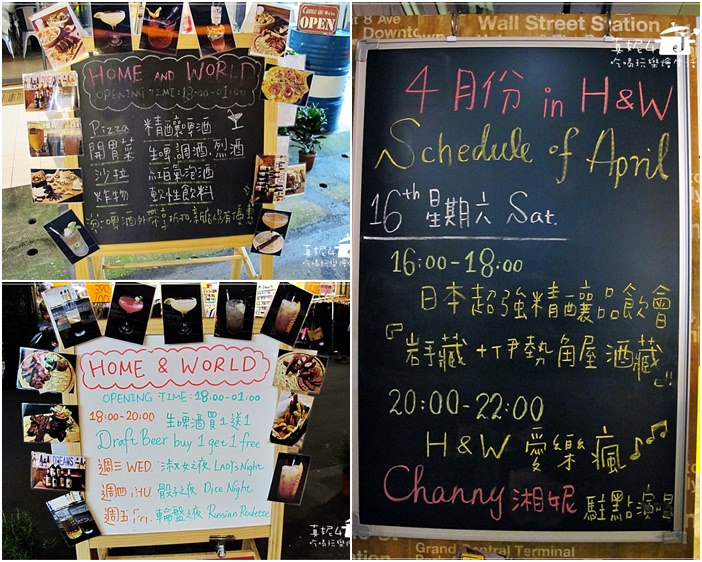 COME IN WE'RE
OPEN
HOME AND WORLD
OPENING TIME: 18:00-01:00
Pizza 精釀啤酒
開胃菜 生啤調酒.烈酒
沙拉 紅白氣泡酒
炸物 軟性飲料
真妮
吃喝玩樂
HOME & WORLD
OPENING TIME: 18:00-01:00
18:00-20:00 生啤酒買1送1
Draft Beer buy 1 get 1 free
週三 WED. 淑女之夜 LADY's Night
週四 THU. 骰子之夜 Dice Night
週五 Fri. 輪盤之夜 Russian Roulette
真妮
吃喝玩樂
8 Ave
Downtown
Wall Street Station
真妮
吃喝玩樂
4月份 in H&W
Schedule of April
16th 星期六 Sat.
16:00-18:00
日本超強精釀品飲會
『岩手藏+伊勢角屋酒藏』!!
20:00-22:00
H&W 愛樂瘋
Channy 湘妮 駐點演唱
Grand Central Terminal